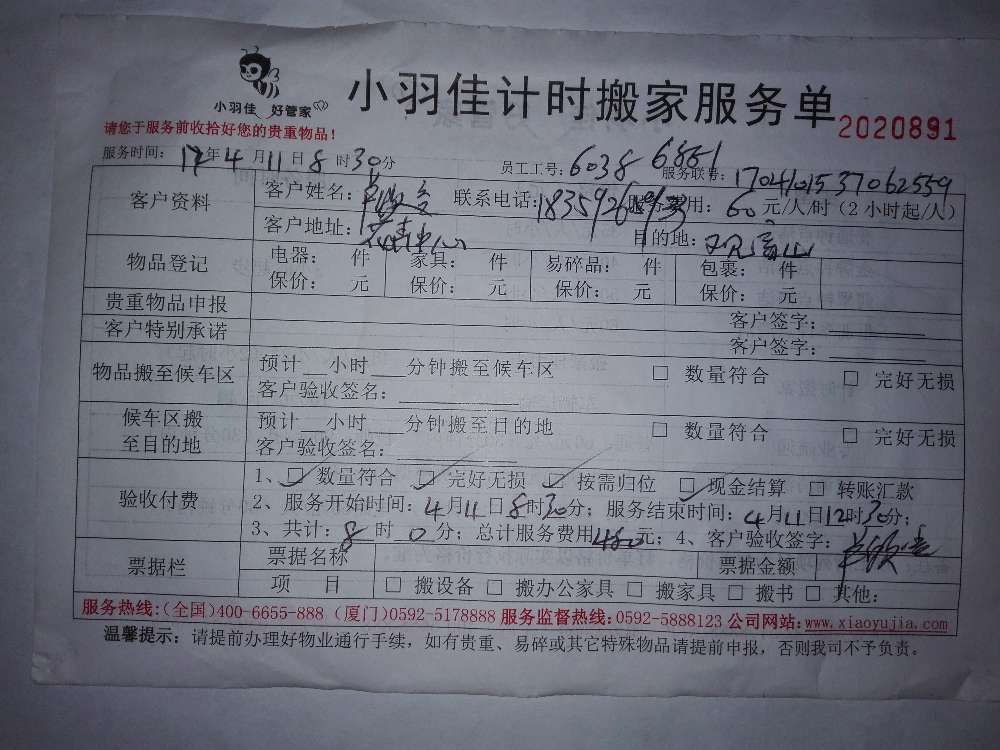 小羽佳 好管家
小羽佳计时搬家服务单
2020891
请您于服务前收拾好您的贵重物品!
服务时间: 17年4月11日8时30分 员工工号: 6038 6881 服务联号: 1704101537062559
客户资料 客户姓名: 联系电话: 服务费用: 60元/人/时（2小时起/人）
客户地址: 目的地:
物品登记 电器: 件 家具: 件 易碎品: 件 包裹: 件
保价: 元 保价: 元 保价: 元 保价: 元
贵重物品申报 客户签字:
客户特别承诺 客户签字:
物品搬至候车区 预计__小时___分钟搬至候车区 □ 数量符合 □ 完好无损
客户验收签名:
候车区搬至目的地 预计__小时___分钟搬至目的地 □ 数量符合 □ 完好无损
客户验收签名:
验收付费 1、☑ 数量符合 ☑ 完好无损 ☑ 按需归位 ☑ 现金结算 □ 转账汇款
2、服务开始时间: 4月11日8时30分; 服务结束时间: 4月11日12时30分;
3、共计: 8时0分; 总计服务费用480元; 4、客户验收签字:
票据栏 票据名称 票据金额
项 目 □ 搬设备 □ 搬办公家具 □ 搬家具 □ 搬书 □ 其他:
服务热线:(全国)400-6655-888 (厦门)0592-5178888 服务监督热线:0592-5888123 公司网站:www.xiaoyujia.com
温馨提示: 请提前办理好物业通行手续，如有贵重、易碎或其它特殊物品请提前申报，否则我司不予负责。